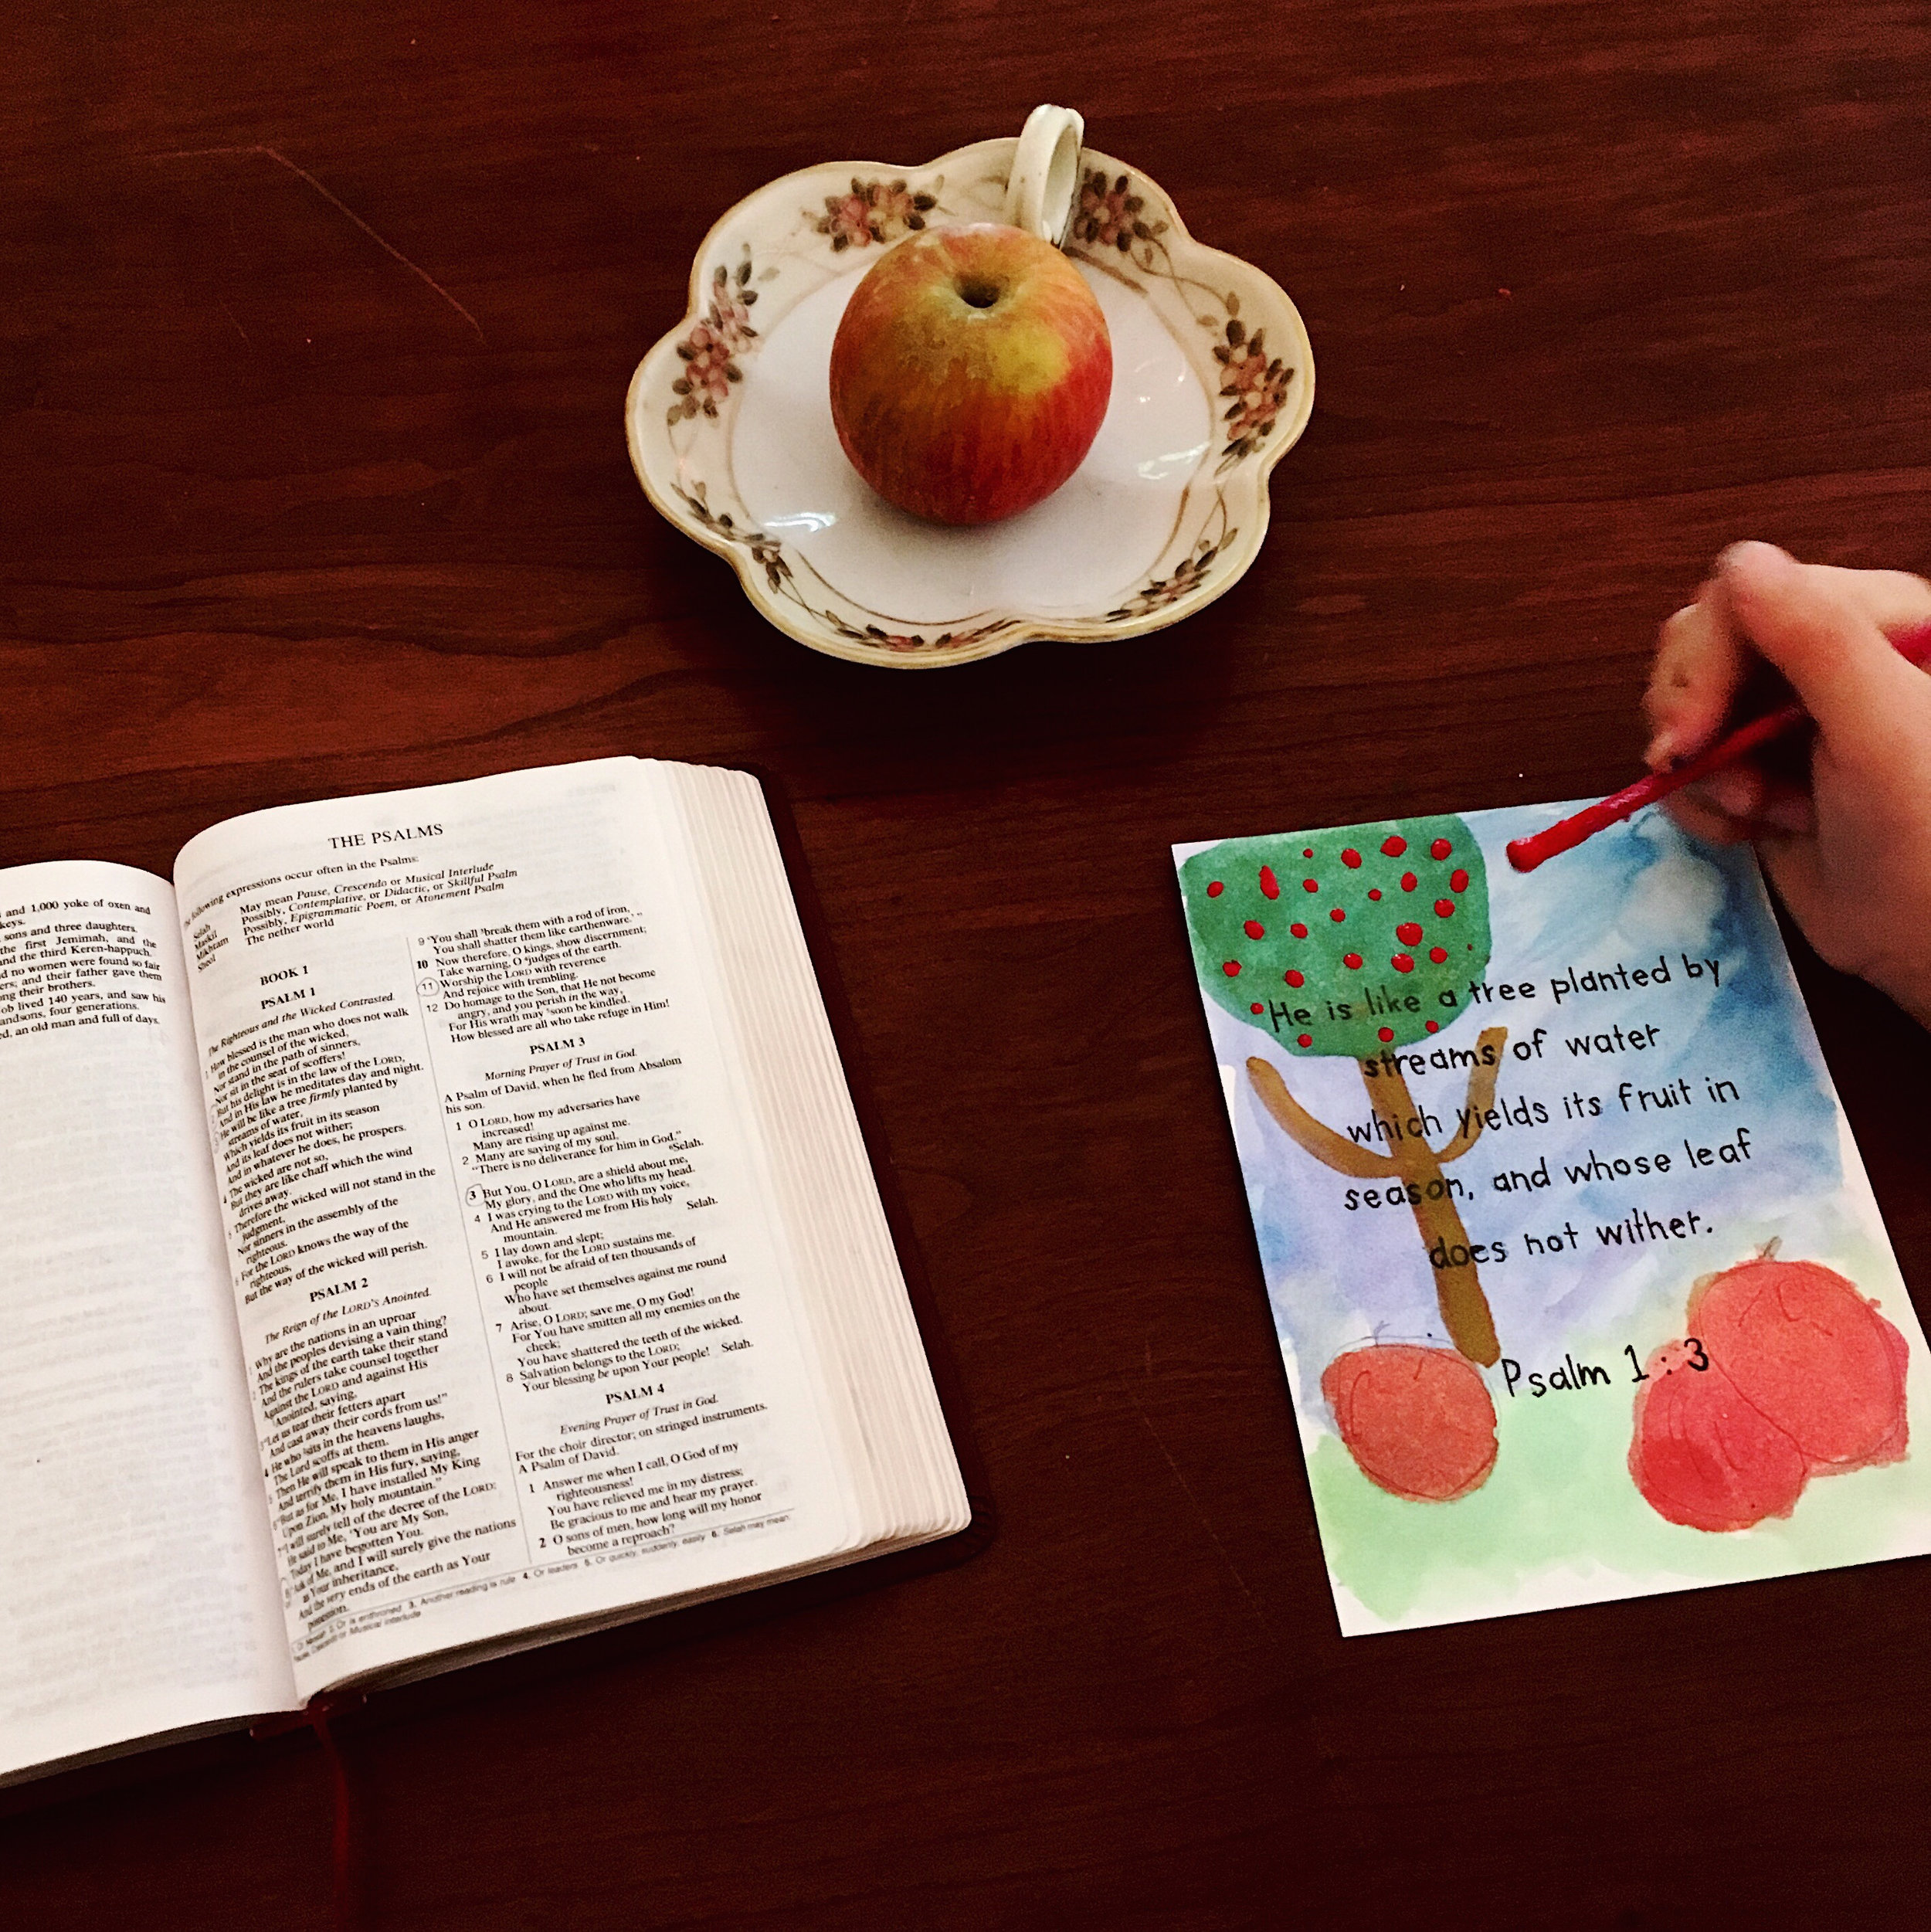 and 1,000 yoke of oxen and
keys.
sons and three daughters.
the first Jemimah, and the
and the third Keren-happuch.
d no women were found so fair
ers; and their father gave them
ng their brothers.
ob lived 140 years, and saw his
andsons, four generations.
d, an old man and full of days.
THE PSALMS
following expressions occur often in the Psalms:
Selah May mean Pause, Crescendo or Musical Interlude
Maskil Possibly, Contemplative, or Didactic, or Skillful Psalm
Mikhtam Possibly, Epigrammatic Poem, or Atonement Psalm
Sheol The nether world
BOOK 1
PSALM 1
The Righteous and the Wicked Contrasted.
1 How blessed is the man who does not walk
in the counsel of the wicked,
Nor stand in the path of sinners,
Nor sit in the seat of scoffers!
But his delight is in the law of the LORD,
And in His law he meditates day and night.
He will be like a tree firmly planted by
streams of water,
Which yields its fruit in its season
And its leaf does not wither;
And in whatever he does, he prospers.
4 The wicked are not so,
But they are like chaff which the wind
drives away.
5 Therefore the wicked will not stand in the
judgment,
Nor sinners in the assembly of the
righteous.
6 For the LORD knows the way of the
righteous,
But the way of the wicked will perish.
PSALM 2
The Reign of the LORD'S Anointed.
1 Why are the nations in an uproar
And the peoples devising a vain thing?
The kings of the earth take their stand
And the rulers take counsel together
Against the LORD and against His
Anointed, saying,
3 "Let us tear their fetters apart
And cast away their cords from us!"
4 He who sits in the heavens laughs,
The Lord scoffs at them.
5 Then He will speak to them in His anger
And terrify them in His fury, saying,
6 "But as for Me, I have installed My King
Upon Zion, My holy mountain."
7 "I will surely tell of the decree of the LORD:
He said to Me, 'You are My Son,
Today I have begotten You.
8 'Ask of Me, and I will surely give the nations
as Your inheritance,
And the very ends of the earth as Your
possession.
9 'You shall break them with a rod of iron,
You shall shatter them like earthenware.' "
10 Now therefore, O kings, show discernment;
Take warning, O judges of the earth.
11 Worship the LORD with reverence
And rejoice with trembling.
12 Do homage to the Son, that He not become
angry, and you perish in the way,
For His wrath may soon be kindled.
How blessed are all who take refuge in Him!
PSALM 3
Morning Prayer of Trust in God.
A Psalm of David, when he fled from Absalom
his son.
1 O LORD, how my adversaries have
increased!
Many are rising up against me.
2 Many are saying of my soul,
"There is no deliverance for him in God."
Selah.
3 But You, O LORD, are a shield about me,
My glory, and the One who lifts my head.
4 I was crying to the LORD with my voice,
And He answered me from His holy
mountain. Selah.
5 I lay down and slept;
I awoke, for the LORD sustains me.
6 I will not be afraid of ten thousands of
people
Who have set themselves against me round
about.
7 Arise, O LORD; save me, O my God!
For You have smitten all my enemies on the
cheek;
You have shattered the teeth of the wicked.
8 Salvation belongs to the LORD;
Your blessing be upon Your people! Selah.
PSALM 4
Evening Prayer of Trust in God.
For the choir director; on stringed instruments.
A Psalm of David.
1 Answer me when I call, O God of my
righteousness!
You have relieved me in my distress;
Be gracious to me and hear my prayer.
2 O sons of men, how long will my honor
become a reproach?
Or is enthroned 3. Another reading is rule 4. Or leaders 5. Or quickly, suddenly, easily 6. Selah may mean
Pause, Crescendo or Musical interlude
He is like a tree planted by
streams of water
which yields its fruit in
season, and whose leaf
does not wither.
Psalm 1:3